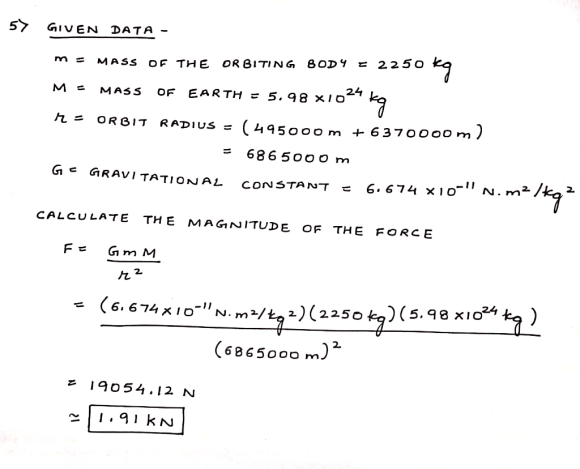 5> GIVEN DATA -
m = MASS OF THE ORBITING BODY = 2250 kg
M = MASS OF EARTH = 5.98 x10²⁴ kg
r = ORBIT RADIUS = (495000 m + 6370000 m)
= 6865000 m
G = GRAVITATIONAL CONSTANT = 6.674 x10⁻¹¹ N.m²/kg²
CALCULATE THE MAGNITUDE OF THE FORCE
F = GmM
r²
= (6.674 x10⁻¹¹ N.m²/kg²)(2250 kg)(5.98 x10²⁴ kg)
(6865000 m)²
= 19054.12 N
≃ 1.91 kN